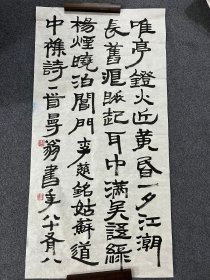 唯亭鐙火近黄昏一夕江潮
長舊痕睡起耳中滿吴語綠
楊煙曉泊閶門李慈銘姑蘇道
中襍詩一首曼翁書年八十有八